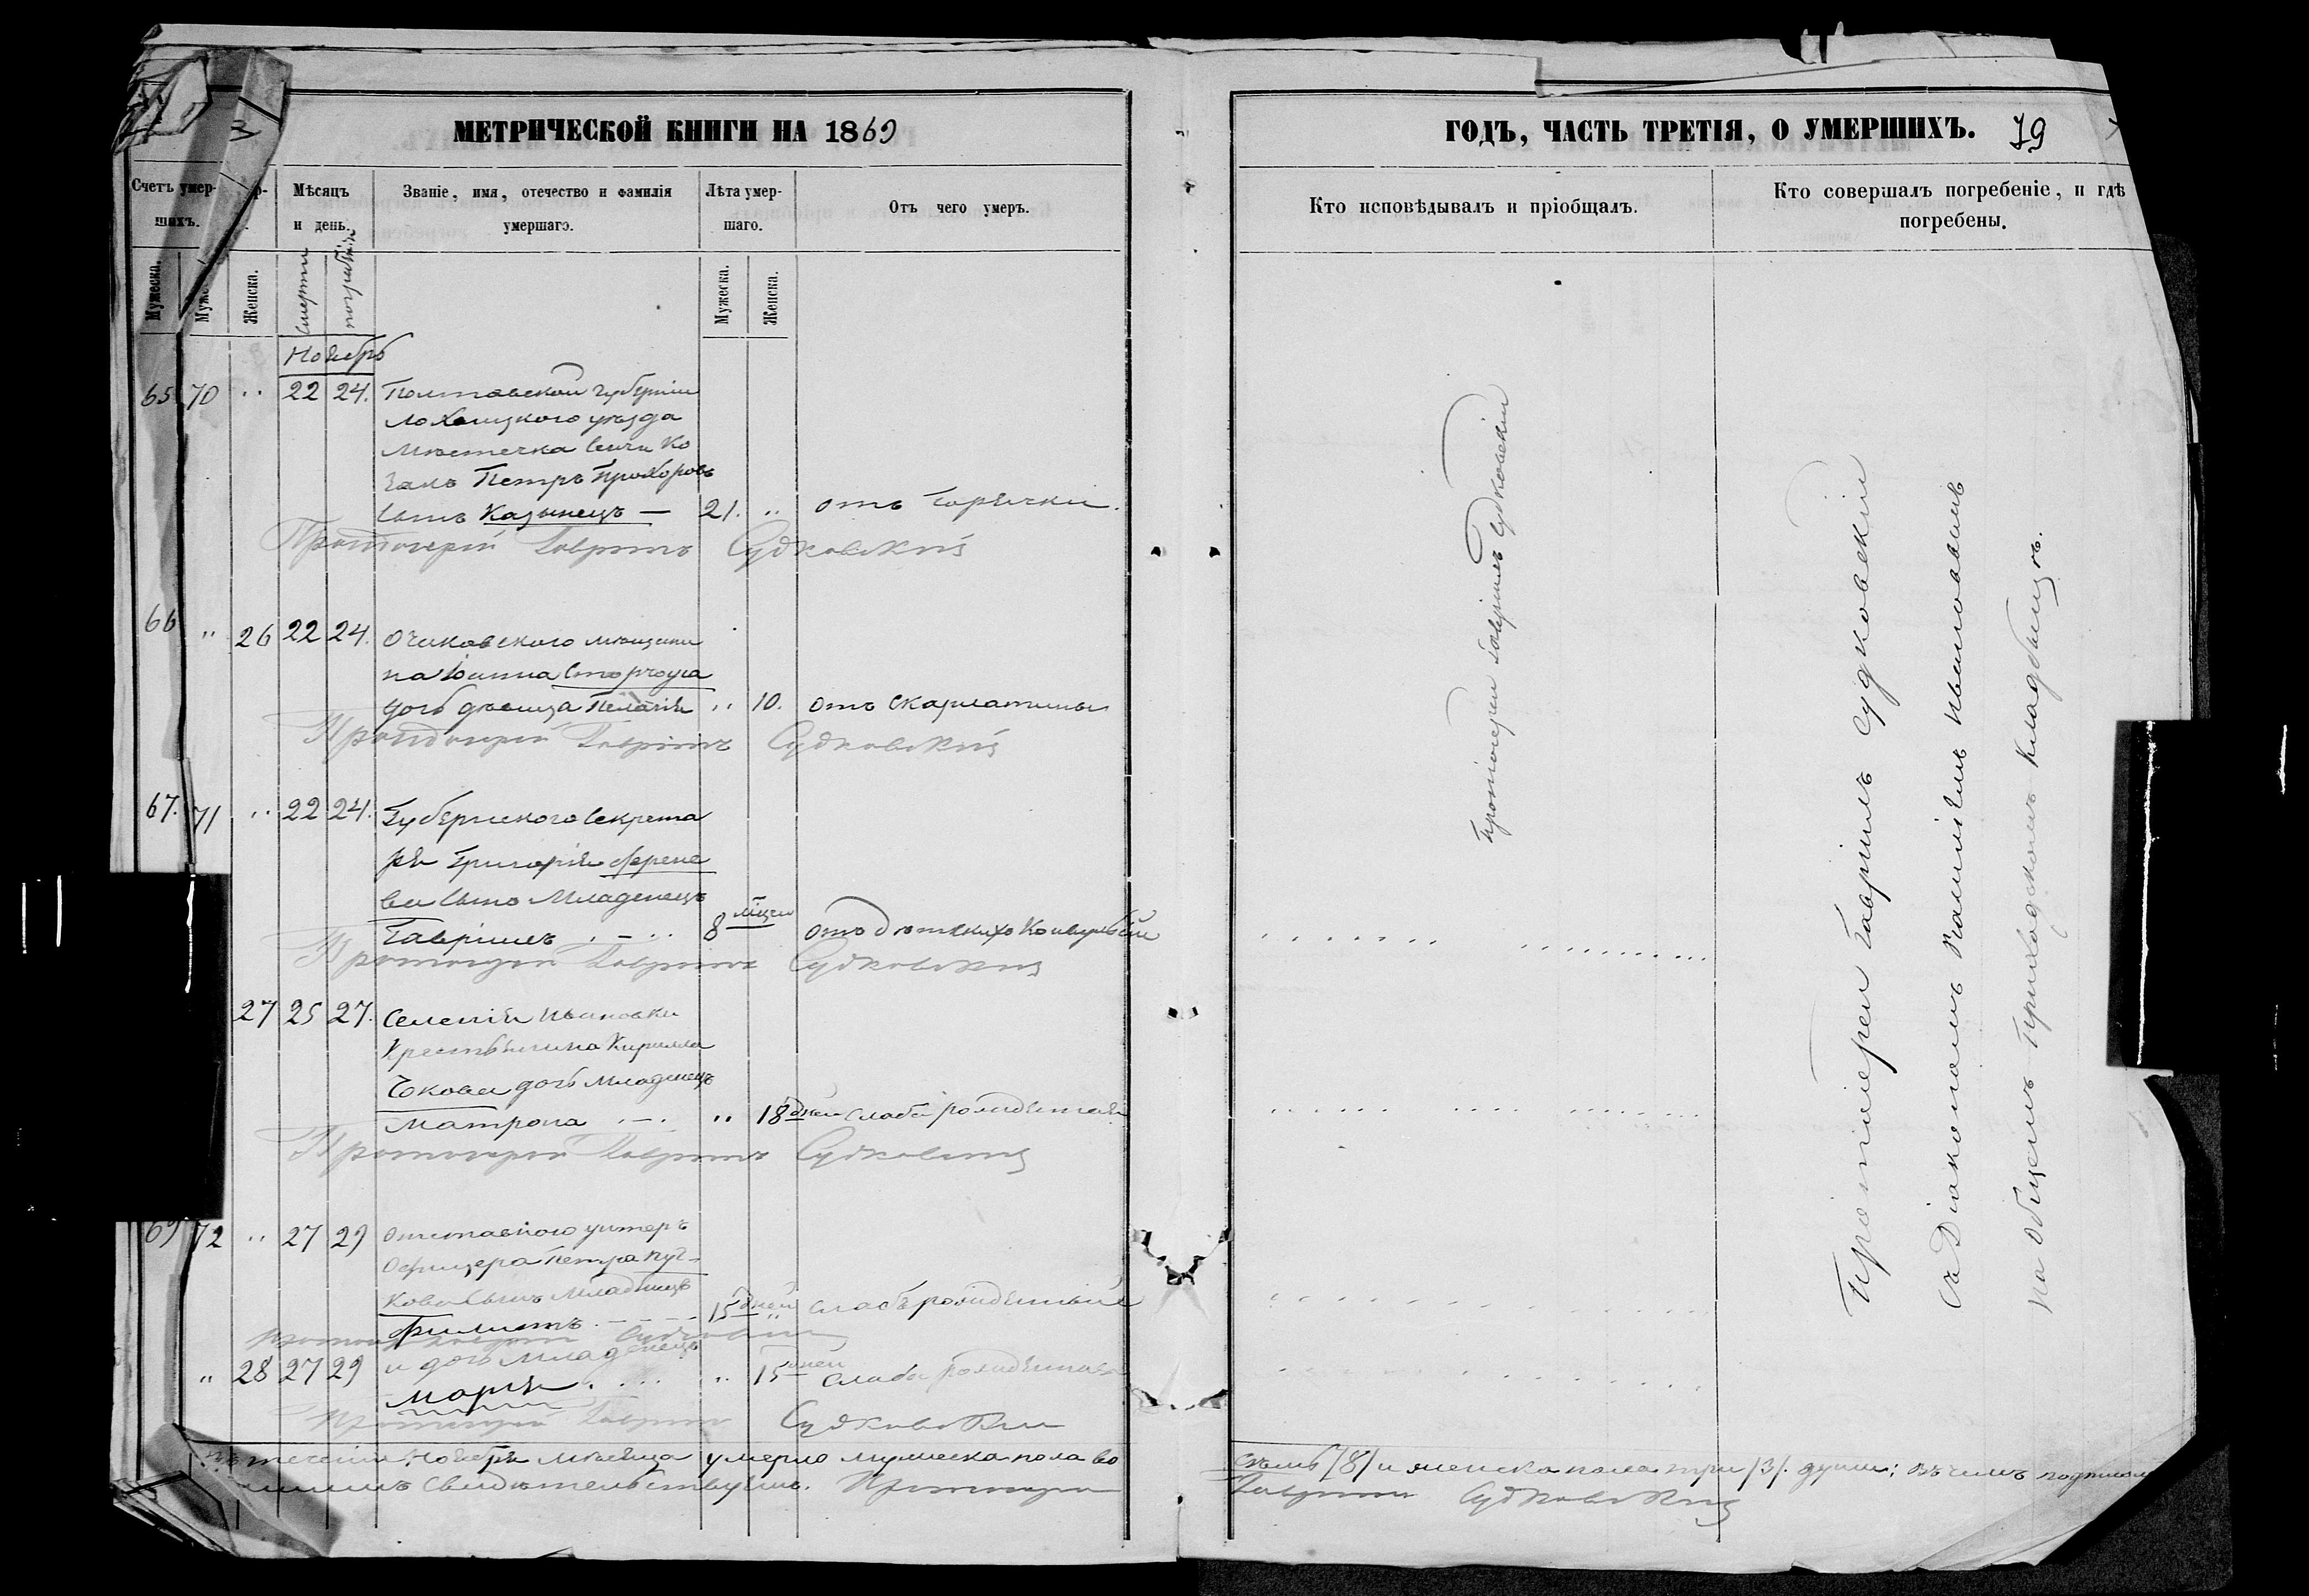 МЕТРИЧЕСКОЙ КНИГИ НА 1869
Счетъ умер-
шихъ.
Мѣсяцъ
и день.
Званіе, имя, отечество и фамилія
умершаго.
Лѣта умер-
шаго.
Отъ чего умеръ.
Мужеска.
Женска.
Смерти
погребенія
Мужеска.
Женска.
Ноябрь
65 70 " 22 24. Полтавской губерніи
Лохвицкого уѣзда
Мѣстечка Сенчи Ко
закъ Петръ Прохоровъ
Сынъ Казынецъ — 21. " отъ Горячки.
Протоіерей Гавріилъ Судковскій
66 " 26 22 24. Очаковского мѣщани
на Іоанна
дочь дѣвица Пелагія " 10. отъ Скарлатины
Протоіерей Гавріилъ Судковскій
67. 71 " 22 24. Губернского Секрета
ря Григорія Арене
ва Сынъ Младенецъ
Гавріилъ 8 мѣсец отъ дѣтскихъ Конвульсій
Протоіерей Гавріилъ Судковскій
27 25 27. Селенія Ивановки
Крестьянина Кирилла
дочь младенецъ
Матрона " 18 дней слаборожденная
Протоіерей Гавріилъ Судковскій
69 72 " 27 29 Отставного унтеръ
Офицера Петра Пуч-
кова Сынъ Младенецъ
Филипъ 15 дней " слабърожденный
Протоіерей Гавріилъ Судковскій
" 28 27 29 и дочь Младенецъ
Марія " 15 дней слаборожденная
Протоіерей Гавріилъ Судковскій
теченіи Ноября мѣсяца умерло мужеска пола во
Свидѣтельствуемъ. Протоіерей
ГОДЪ, ЧАСТЬ ТРЕТІЯ, О УМЕРШИХЪ. 79
Кто исповѣдывалъ и пріобщалъ.
Кто совершалъ погребеніе, и гдѣ
погребены.
Протоіерей Гавріилъ Судковскій
Протоіерей Гавріилъ Судковскій
съ Діакономъ Ивановымъ
на Общемъ Приходскомъ Кладбищѣ.
семь /8/ и женска пола три /3/. души; въ чемъ
Гавріилъ Судковскій